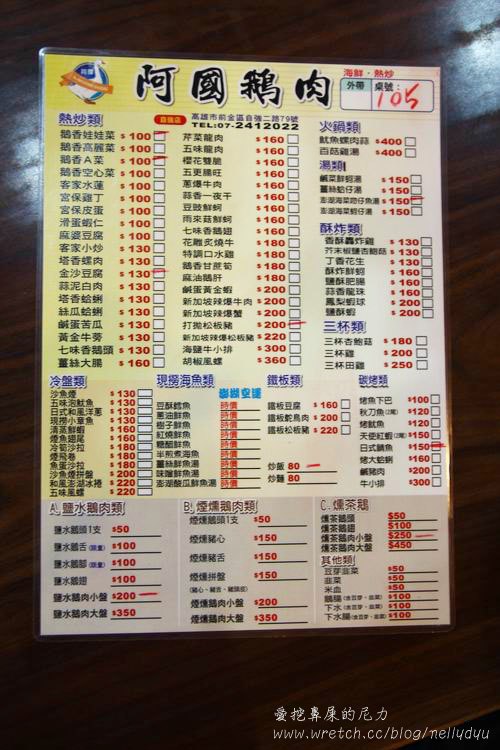 阿國鵝肉
海鮮‧熱炒
外帶
桌號:
105
自強店
高雄市前金區自強二路79號
TEL:07-2412022
熱炒類
鵝香娃娃菜 $100
鵝香高麗菜 $100
鵝香A菜 $100
鵝香空心菜 $100
客家水蓮 $130
宮保雞丁 $130
宮保皮蛋 $130
滑蛋蝦仁 $130
麻婆豆腐 $130
客家小炒 $130
塔香螺肉 $130
金沙豆腐 $130
蒜泥白肉 $130
塔香蛤蜊 $130
絲瓜蛤蜊 $130
鹹蛋苦瓜 $130
黃金牛蒡 $130
七味香鵝頭 $130
薑絲大腸 $160
芹菜龍肉 $160
五味龍肉 $160
櫻花雙脆 $160
蔥爆牛肉 $160
五更腸旺 $160
蒜香一夜干 $160
豆豉鮮蚵 $160
雨來菇鮮蚵 $160
七味香鵝翅 $160
花雕炙燒牛 $180
特調口水雞 $180
鵝香甘蔗筍 $180
麻油鵝肝 $180
鹹蛋黃金蝦 $200
新加坡辣爆牛肉 $200
新加坡辣爆蟹 $200
打拋松板豬 $200
新加坡辣爆松板豬 $220
海鹽牛小排 $300
胡椒風螺 $360
火鍋類
魷魚螺肉蒜 $400
百菇雞湯 $400
湯類
鹹菜鮮蚵湯 $150
薑絲蛤仔湯 $150
澎湖海菜吻仔魚湯 $150
澎湖海菜鮮蚵湯 $150
酥炸類
香酥轟炸雞 $130
芥末椒鹽杏鮑菇 $130
丁香花生 $130
酥炸鮮蚵 $160
鹽酥肥腸 $160
蒜香龍珠 $160
鳳梨蝦球 $200
鹽酥蝦 $200
三杯類
三杯杏鮑菇 $180
三杯雞 $200
三杯田雞 $250
冷盤類
沙魚煙 $130
五味泡魷魚 $130
日式和風洋蔥 $130
現撈小章魚 $130
清蒸鮮蝦 $160
煙魚翅尾 $160
冷筍沙拉 $180
煙飛卷 $180
魚蛋沙拉 $180
沙魚煙拼盤 $200
和風澎湖冰捲 $220
五味風螺 $220
現撈海魚類
澎湖空運
豆酥鱈魚 時價
蔥油鮮魚 時價
樹子鮮魚 時價
紅燒鮮魚 時價
糖醋鮮魚 時價
半煎煮海魚 時價
薑絲鮮魚湯 時價
味噌鮮魚湯 時價
澎湖酸瓜鮮魚湯 時價
鐵板類
鐵板豆腐 $160
鐵板鴕鳥肉 $200
鐵板松板豬 $220
炒飯 80
炒麵 80
碳烤類
烤魚下巴 $100
秋刀魚(2尾) $120
烤魷魚 $120
天使紅蝦(2尾) $120
日式鯖魚 $150
烤大蛤蜊 $160
鹹豬肉 $200
牛小排 $300
A.鹽水鵝肉類
鹽水鵝頭1支 $50
鹽水鵝舌(限量) $100
鹽水鵝腳(限量) $100
鹽水鵝翅 $100
鹽水鵝肉小盤 $200
鹽水鵝肉大盤 $350
B.煙燻鵝肉類
煙燻鵝頭1支 $50
煙燻豬心 $150
煙燻豬舌 $150
煙燻拼盤 $150
(豬心、豬舌、豬頭皮)
煙燻鵝肉小盤 $200
煙燻鵝肉大盤 $350
C.燻茶鵝
燻茶鵝頭 $50
燻茶鵝翅 $100
燻茶鵝肉小盤 $250
燻茶鵝肉大盤 $450
其他類
豆芽韭菜 $50
韭菜 $50
米血 $50
鵝腸(含豆芽、韭菜) $100
下水(含豆芽、韭菜) $100
下水腸(含豆芽、韭菜) $100
愛挖鼻屎的尼力
www.wretch.cc/blog/nellydyu